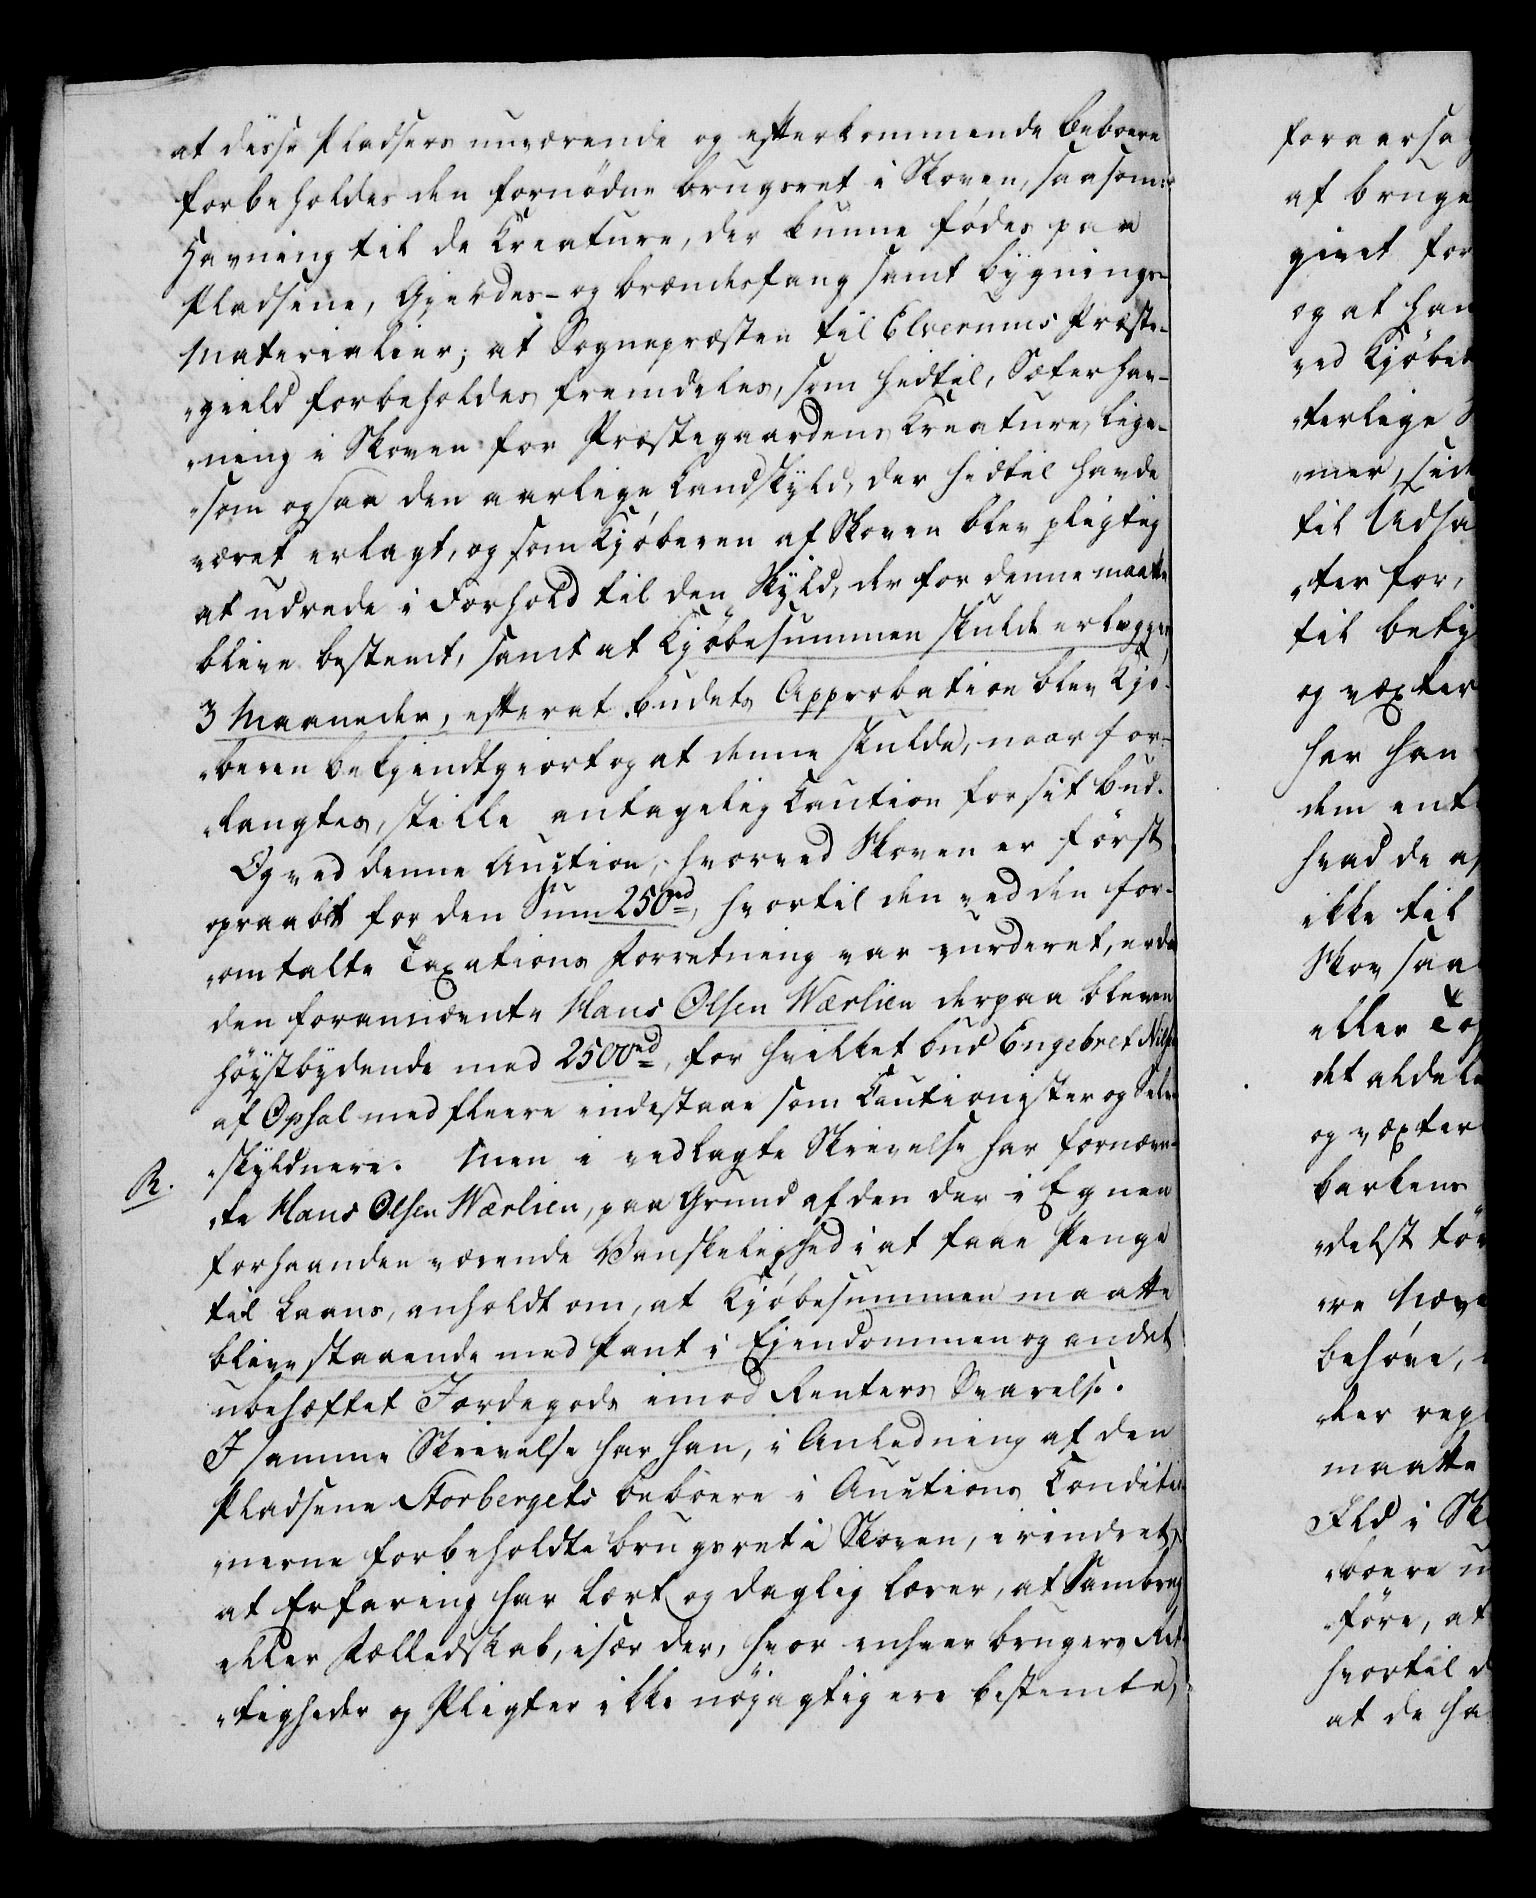 at disse Pladsers nuværende og efterkommende Beboere
forbeholdes den fornødne brugsret i Skoven, saasom:
Havning til de Kreature, der kunne fødes paa
Pladsene, Gjerdes- og brændefang samt bygnings-
Materialier; at Sognepræsten til Elverums Præste-
„gield forbeholdes fremdeles, som hidtil, Sæterhav-
„ning i Skoven for Præstegaardens Kreature, lige-
„som ogsaa den aarlige Landskyld, der hidtil havde
været erlagt, og som Kjøberen af Skoven blev pligtig
at udrede i Forhold til den Skyld, der for denne maatte
blive bestemt, samt at Kjøbesummen skulde erlægges
3 Maaneder, efterat Budets Approbation blev Kjø-
„beren bekjendtgiort og at denne skulde, naar for-
„langtes, stille antagelig Caution for sit bud.
Og ved denne Auction, hvorved Skoven er først
opraabt for den Sum 250rd, hvortil den ved den for-
„omtalte Taxations Forretning var vurderet, er da
den forannævnte Hans Olsen Wærlien derpaa bleven
høystbydende med 2500rd, for hvilket bud Engebret Nils
af Ophal med fleere indestaae som Cautionister og Selv
„skyldnere. Men i vedlagte Skrivelse har fornævn-
R.
„te Hans Olsen Wærlien, paa Grund af den der i Egnen
forhaanden værende Vanskelighed i at faae Penge
til Laans, anholdt om, at Kjøbesummen maatte
blive staaende med Pant i Ejendommen og andet
ubehæftet Jordegods imod Renters Svarelse.
I samme Skrivelse har han, i Anledning af den
Pladsene Storbergets beboere i Auctions Conditio
„nerne forbeholdte brugsret i Skoven, erindret,
at Erfaring har lært og daglig lærer, at Sambrug
eller Fælledskab, især der, hvor enhver brugers Ret
„tigheder og Pligter ikke nøjagtig ere bestemte,
foraarsa
af bruge
givet for
og at han
ved Kjøbet
„terlige
„mer, sid
til Udsa
„ter for,
til bety
og væxter
har han
dem ent
hvad de a
ikke til
Skov saa
eller To
det aldele
og væxter
barkens
„delst tør
„re Næve
behøve,
„ler reg
maatte
Ild i Sk
„boere u
føre, at
hvortil d
at de ha